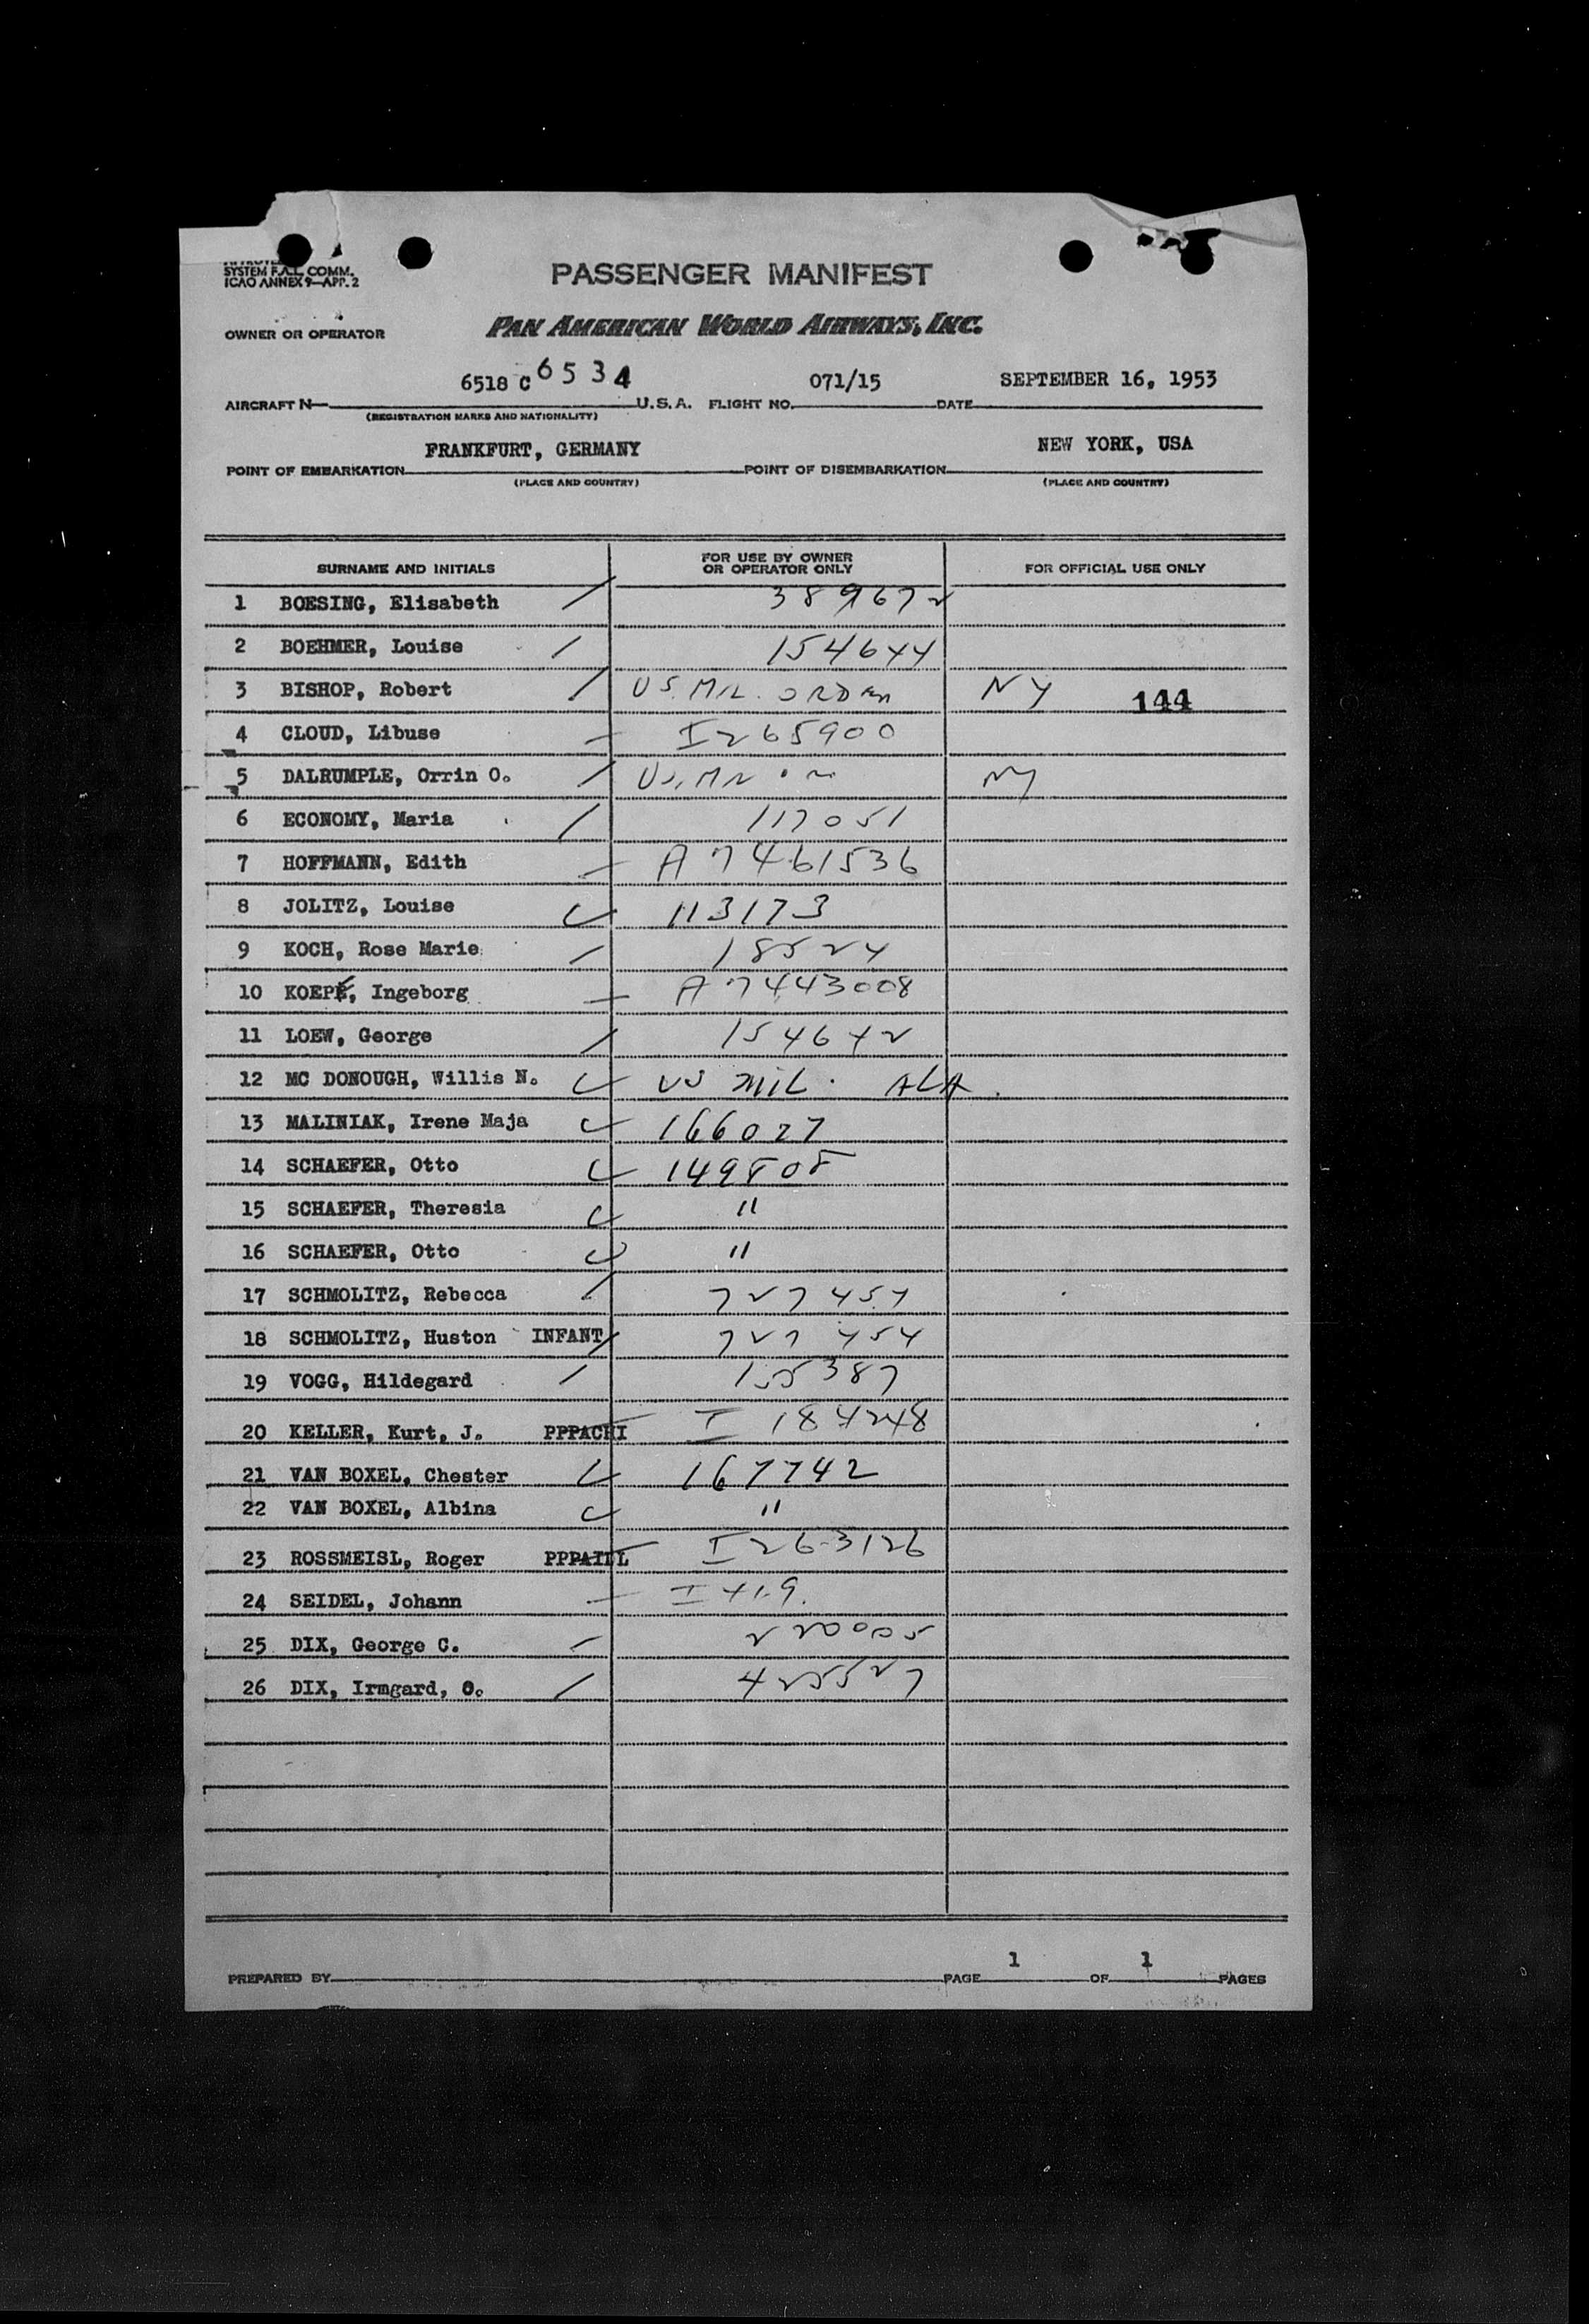 SYSTEM F.A.L. COMM.
ICAO ANNEX 9—APP. 2
PASSENGER MANIFEST
OWNER OR OPERATOR PAN AMERICAN WORLD AIRWAYS, INC.
6518 C 6534 071/15 SEPTEMBER 16, 1953
AIRCRAFT N— U.S.A. FLIGHT NO. DATE
(REGISTRATION MARKS AND NATIONALITY)
FRANKFURT, GERMANY NEW YORK, USA
POINT OF EMBARKATION POINT OF DISEMBARKATION
(PLACE AND COUNTRY) (PLACE AND COUNTRY)
SURNAME AND INITIALS FOR USE BY OWNER OR OPERATOR ONLY FOR OFFICIAL USE ONLY
1 BOESING, Elisabeth 389672
2 BOEHMER, Louise 154644
3 BISHOP, Robert US. MIL. ORDER NY 144
4 CLOUD, Libuse I 265900
5 DALRUMPLE, Orrin O. NY
6 ECONOMY, Maria 117051
7 HOFFMANN, Edith A 7461536
8 JOLITZ, Louise 113173
9 KOCH, Rose Marie 18524
10 KOEPE, Ingeborg A 7443008
11 LOEW, George 154642
12 MC DONOUGH, Willis N. US MIL. ALA.
13 MALINIAK, Irene Maja 166027
14 SCHAEFER, Otto 149808
15 SCHAEFER, Theresia "
16 SCHAEFER, Otto "
17 SCHMOLITZ, Rebecca 727454
18 SCHMOLITZ, Huston INFANT 727454
19 VOGG, Hildegard 155387
20 KELLER, Kurt, J. PPPACHI I 184248
21 VAN BOXEL, Chester 167742
22 VAN BOXEL, Albina "
23 ROSSMEISL, Roger PPPAILL I 263126
24 SEIDEL, Johann I 419.
25 DIX, George C. 220005
26 DIX, Irmgard, O. 425527
PREPARED BY PAGE 1 OF 1 PAGES